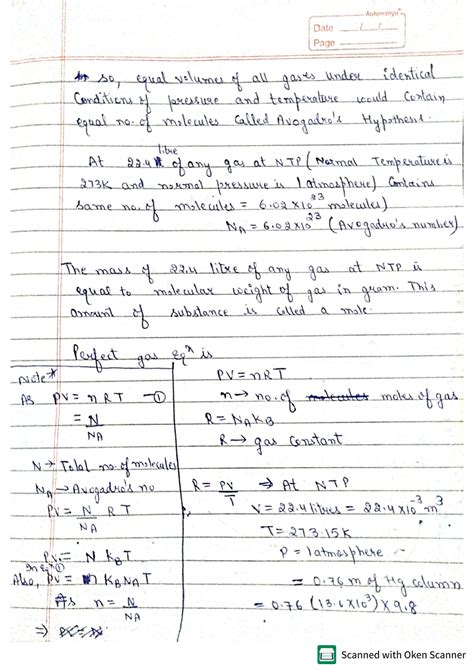 Ashirwanya
Date __/__/__
Page ____
so, equal volumes of all gases under identical
Conditions of pressure and temperature would Contain
equal no. of molecules Called Avogadro's Hypothesis.
litre
At 22.4 of any gas at NTP (Normal Temperature is
273K and normal pressure is 1 atmosphere) Contains
same no. of molecules = 6.02×10²³ molecules)
N_A = 6.02×10²³ (Avogadro's number)
The mass of 22.4 litre of any gas at NTP is
equal to molecular weight of gas in gram. This
amount of substance is called a mole.
Perfect gas Eqⁿ is
Note*
As PV = nRT —①
= N/N_A
N → Total no. of molecules
N_A → Avogadro's no
PV = N/N_A RT
PV = N k_B T
In Eqⁿ ①
Also, PV = n k_B N_A T
As n = N/N_A
⇒ PV = N
PV = nRT
n → no. of molecules moles of gas
R = N_A k_B
R → gas Constant
R = PV/T ⇒ At NTP
V = 22.4 litres = 22.4×10⁻³ m³
T = 273.15K
P = 1 atmosphere
= 0.76 m of Hg column
= 0.76 (13.6×10³) × 9.8
Scanned with Oken Scanner